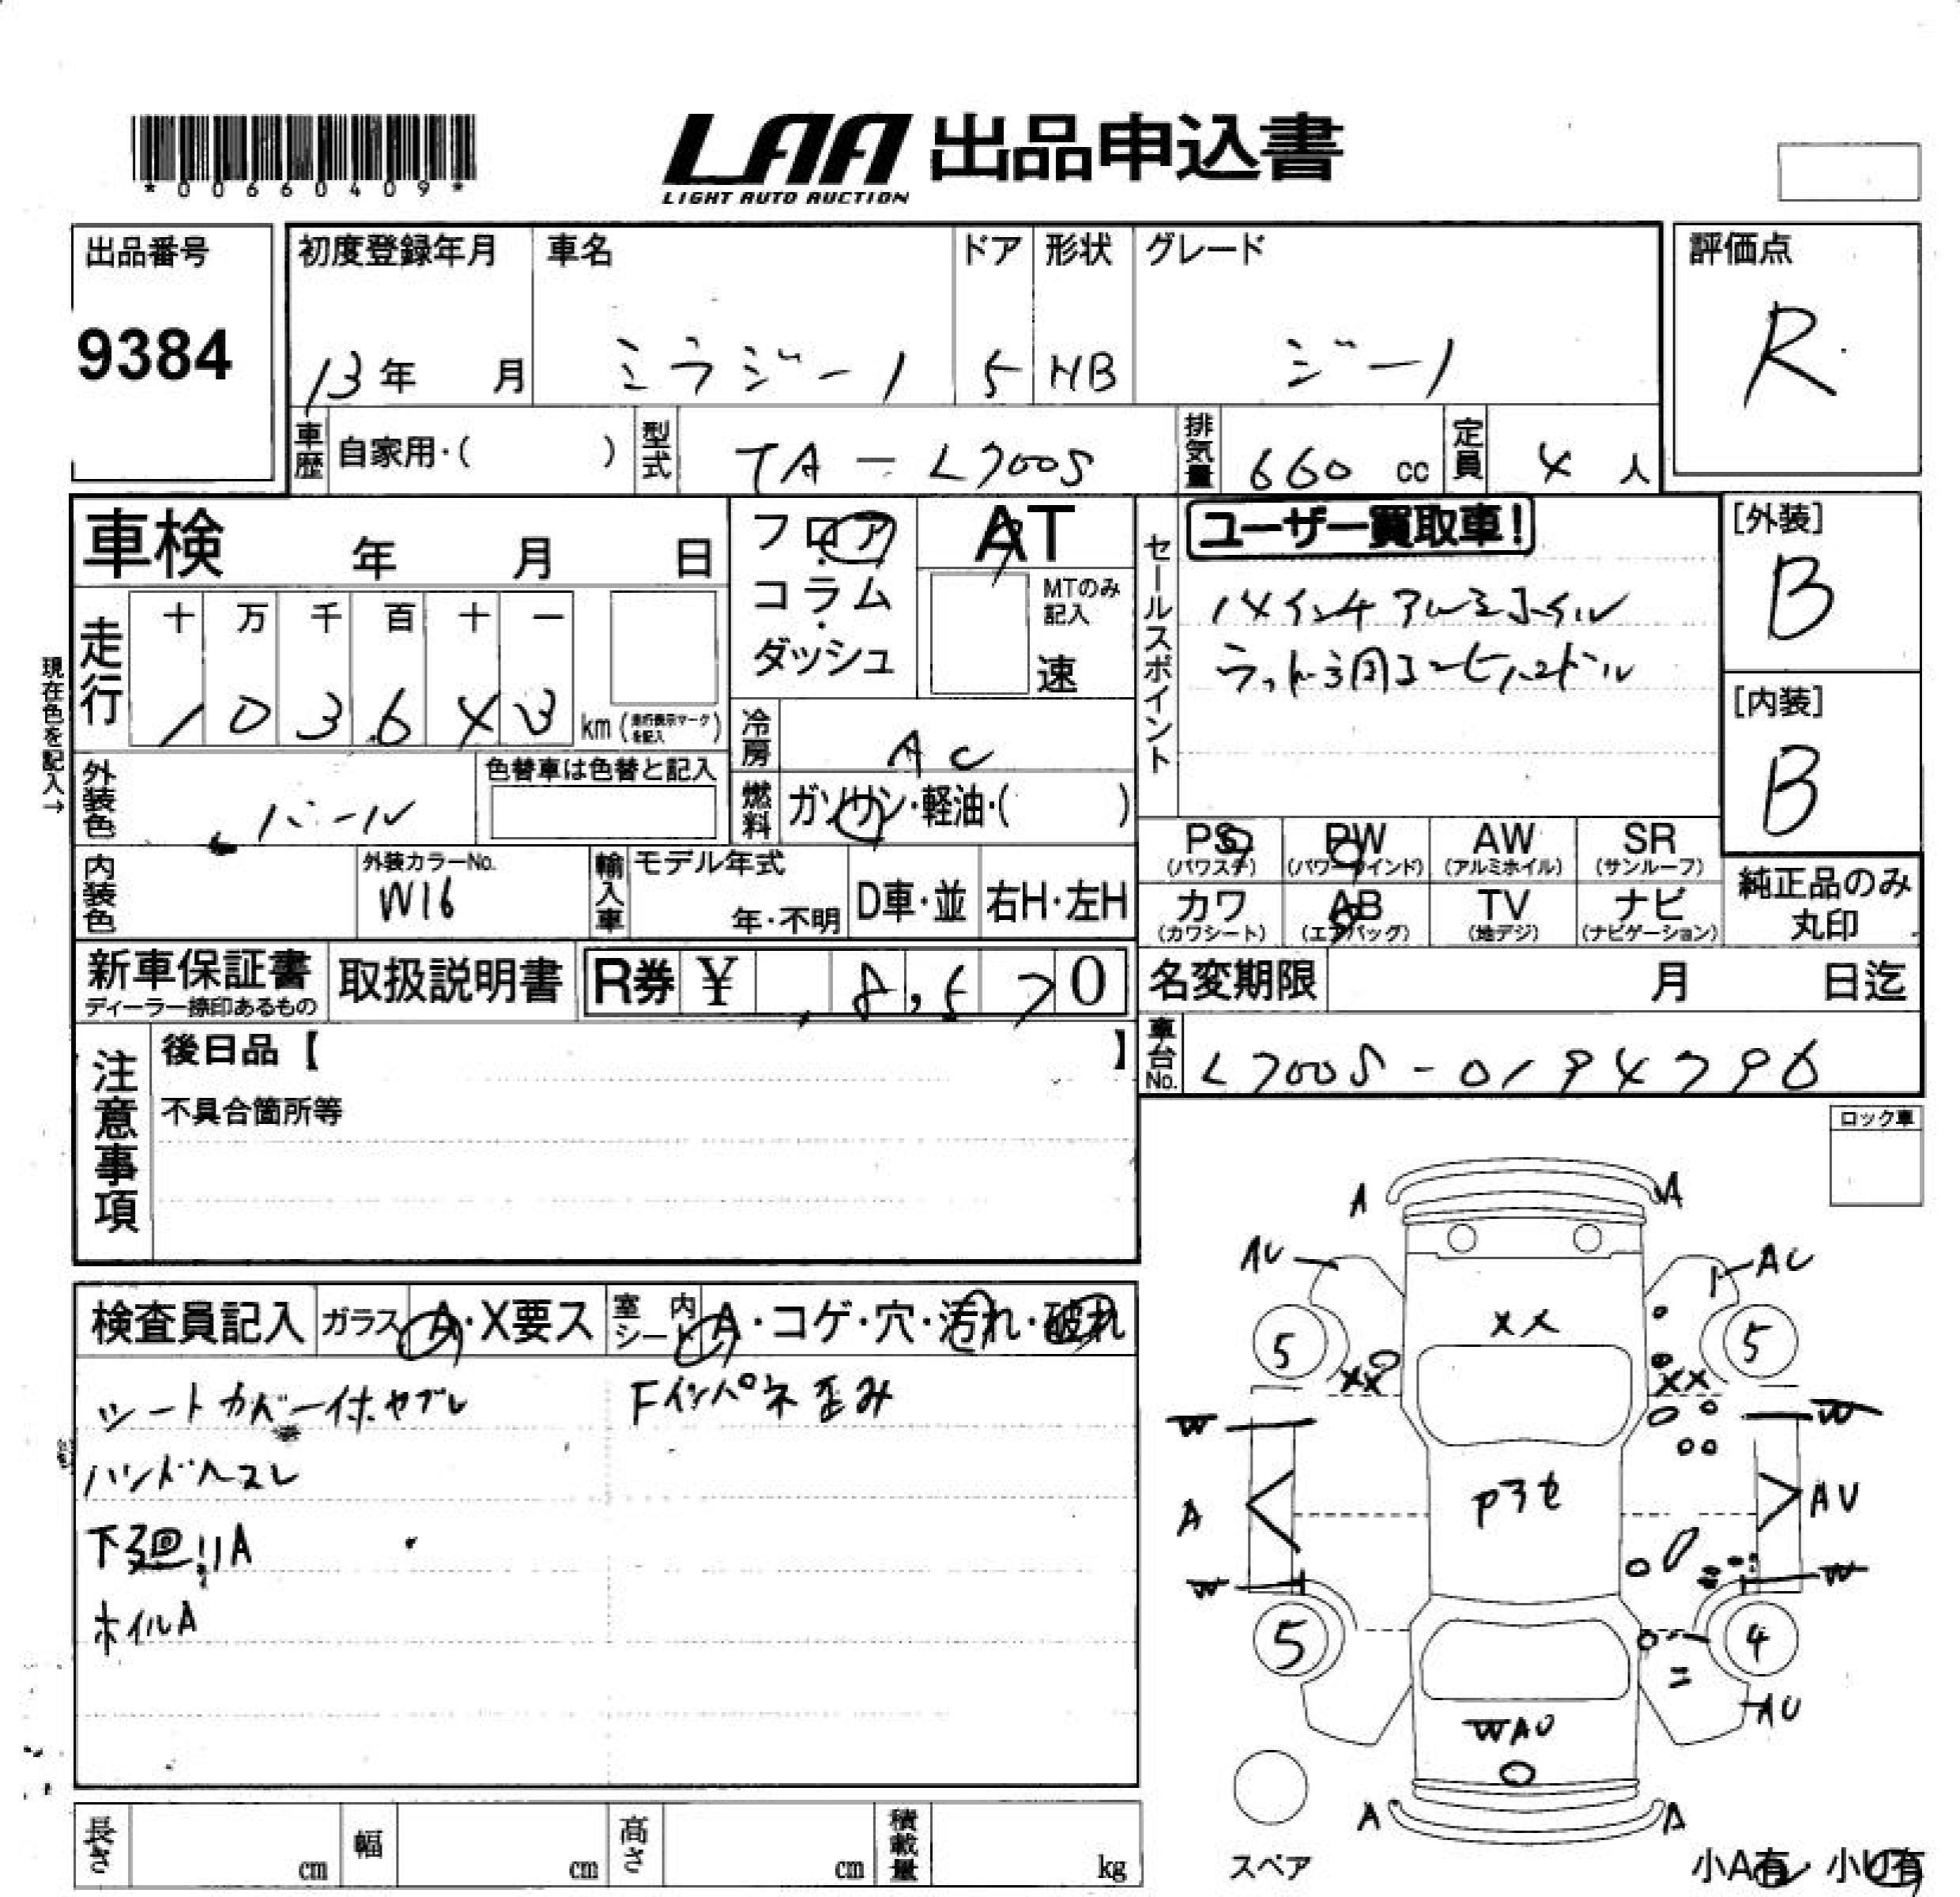 *00660409*
LAA 出品申込書
LIGHT AUTO AUCTION
出品番号
9384
初度登録年月
13年 月
車名
ミラジーノ
ドア
5
形状
HB
グレード
ジーノ
評価点
R
車歴 自家用・( )
型式 TA-L700S
排気量 660 cc
定員 4 人
車検 年 月 日
フロア・コラム・ダッシュ
AT
MTのみ記入
速
セールスポイント
ユーザー買取車!
14インチアルミホイル
[外装]
B
[内装]
B
現在色を記入→
走行 十 万 千 百 十 一
1 0 3 6 4 3 km (走行表示マークを記入)
冷房 AC
燃料 ガソリン・軽油・( )
外装色 パール
色替車は色替と記入
内装色
外装カラーNo.
W16
輸入車 モデル年式
年・不明
D車・並
右H・左H
PS (パワステ)
PW (パワーウインド)
AW (アルミホイル)
SR (サンルーフ)
カワ (カワシート)
AB (エアバッグ)
TV (地デジ)
ナビ (ナビゲーション)
純正品のみ丸印
新車保証書
ディーラー捺印あるもの
取扱説明書
R券 ¥ 8,570
名変期限 月 日迄
車台No. L700S-0194796
注意事項
後日品【 】
不具合箇所等
ロック車
検査員記入
ガラス A・X要ス
室内シート A・コゲ・穴・汚れ・破れ
シートカバー付ヤブレ
Fインパネ歪み
ハンドルスレ
下廻りA
ホイルA
A A
AU AU
XX
5 5
XX XX
W W
A AU
Pアセ
W W
5 4
AU
WAU
A A
スペア
小A有・小U有
長さ cm
幅 cm
高さ cm
積載量 kg